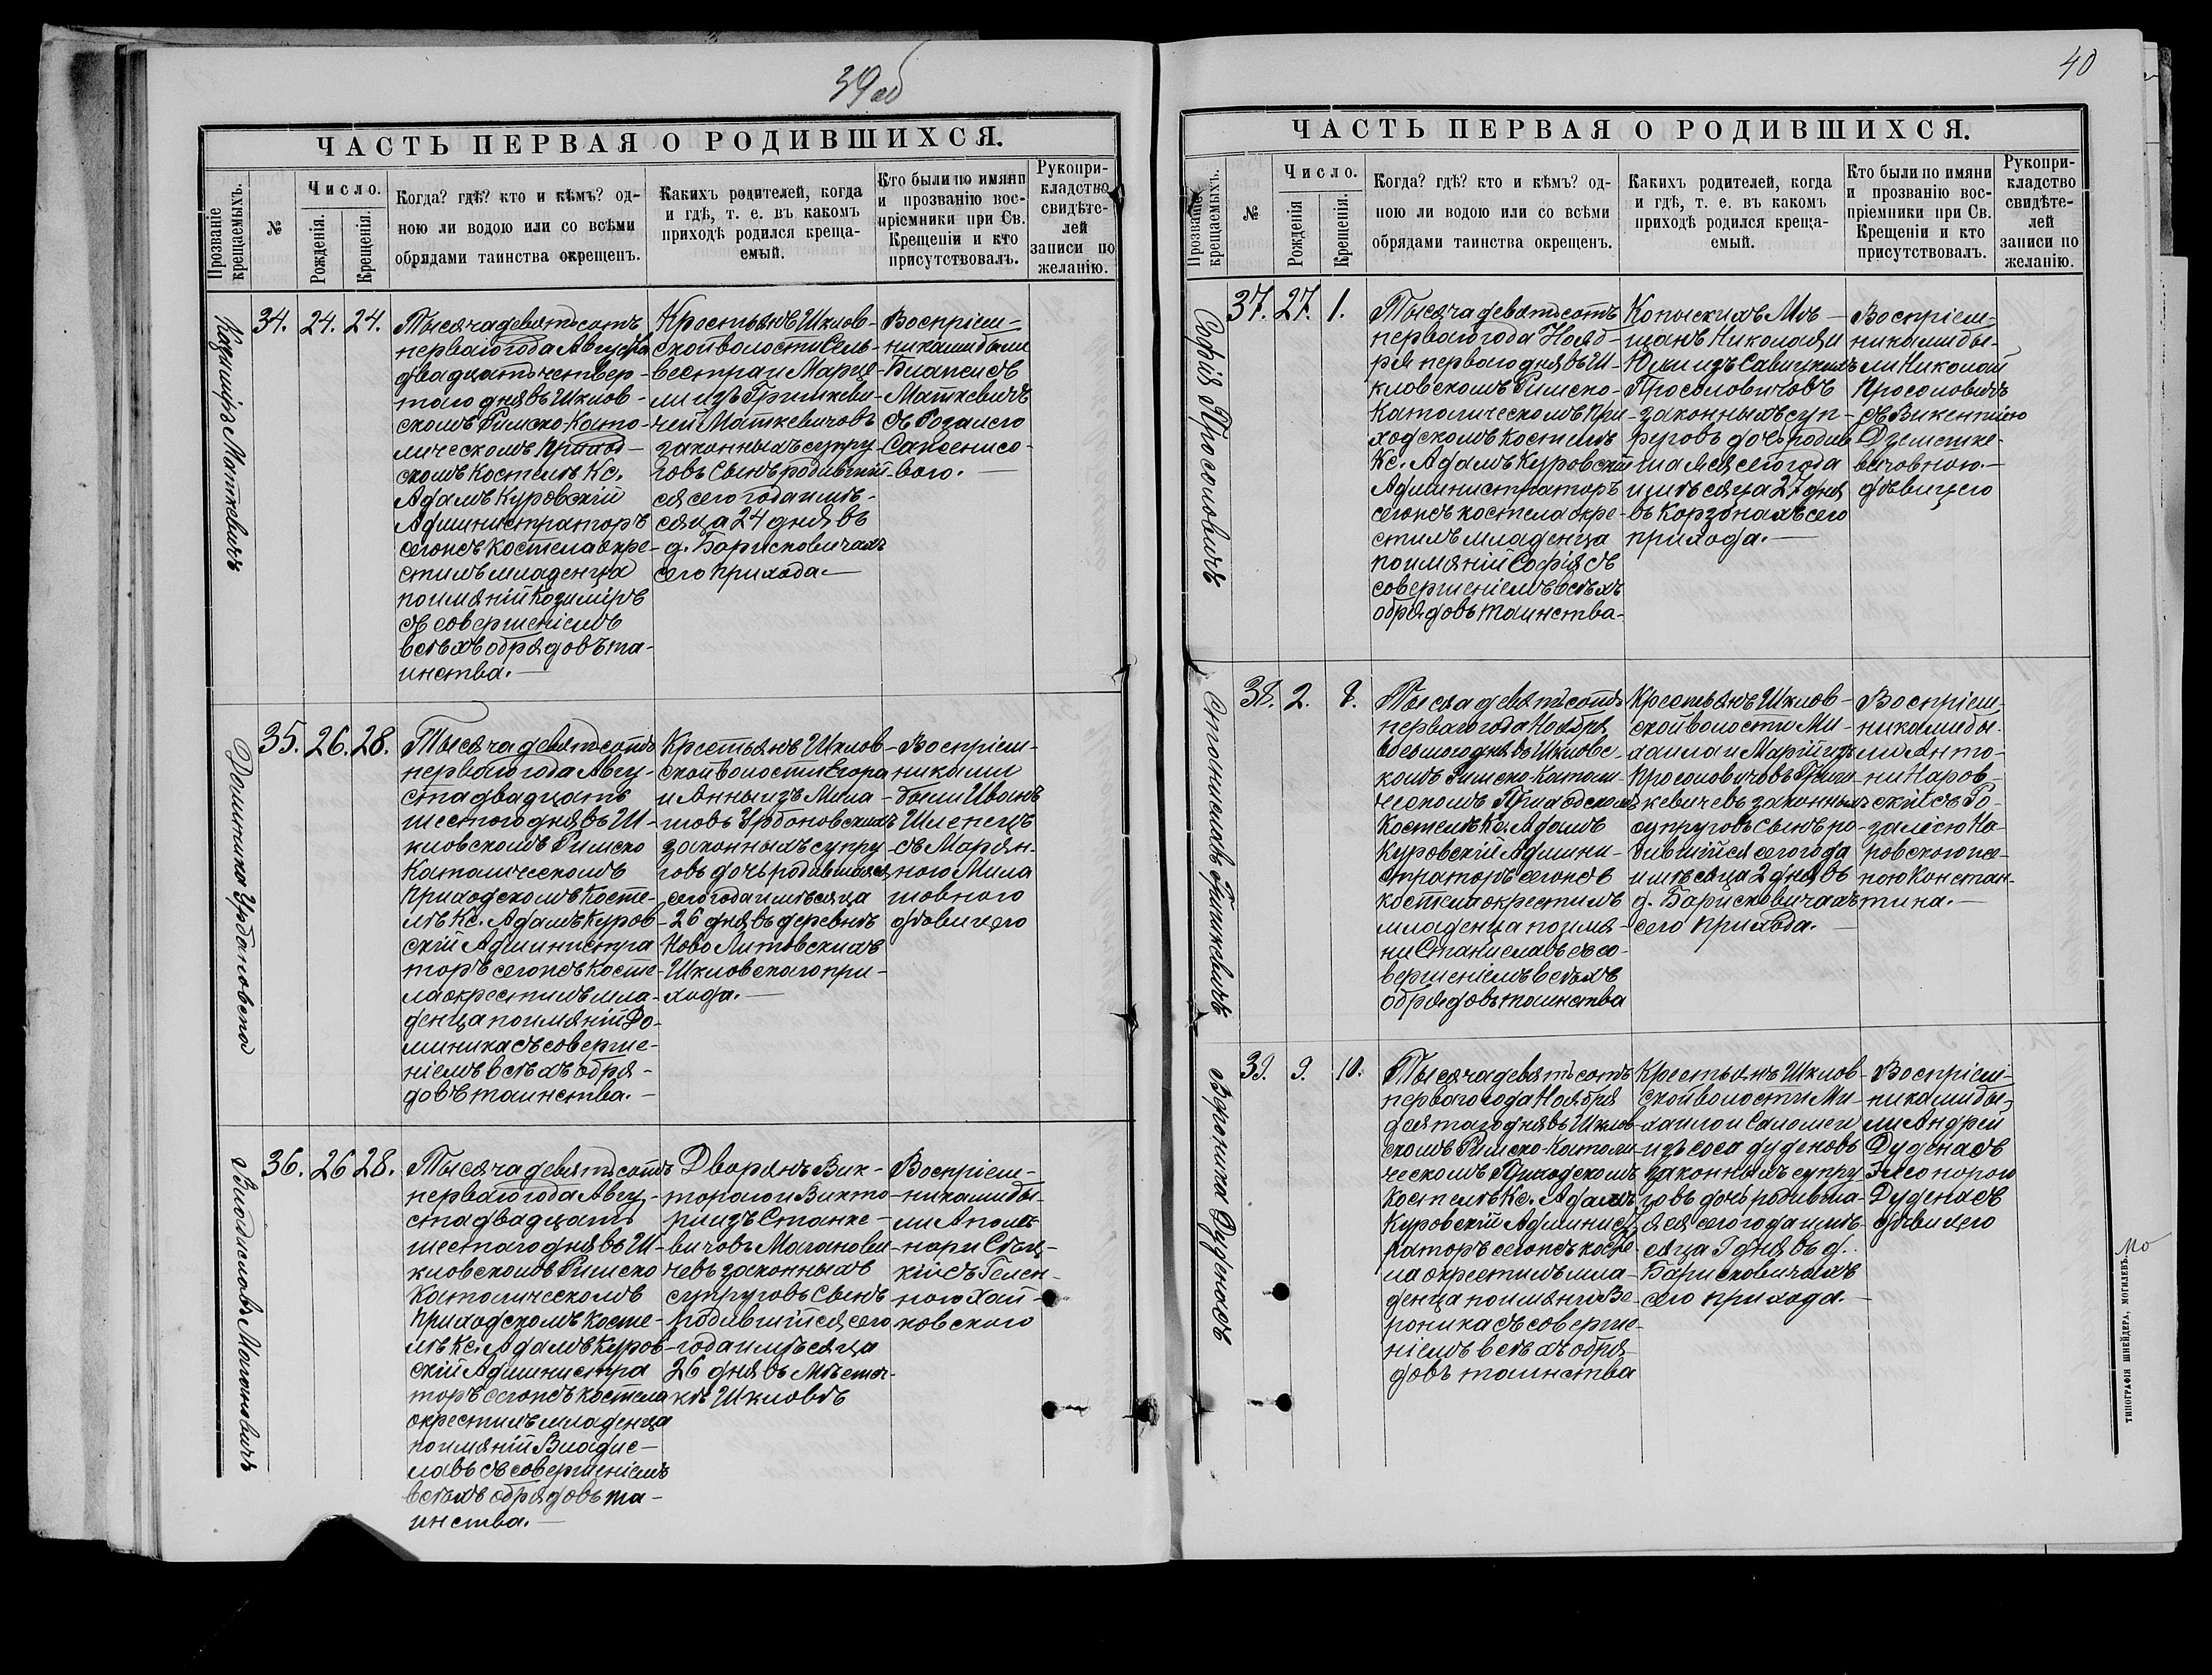 39об
ЧАСТЬ ПЕРВАЯ О РОДИВШИХСЯ.
Прозваніе крещаемыхъ.
№
Число.
Рожденія.
Крещенія.
Когда? гдѣ? кто и кѣмъ? од-
ною ли водою или со всѣми
обрядами таинства окрещенъ.
Какихъ родителей, когда
и гдѣ, т. е. въ какомъ
приходѣ родился креща-
емый.
Кто были по имяни
и прозванію вос-
пріемники при Св.
Крещеніи и кто
присутствовалъ.
Рукопри-
кладство
свидѣте-
лей
записи по
желанію.
Казиміръ Маткевичъ
34. 24. 24.
Тысяча девятьсотъ
перваго года Августа
двадцать четвер-
таго дня въ Шклов-
скомъ Римско-Като-
лическомъ Приход-
скомъ Костелѣ Кс.
Адамъ Куровскій
Администраторъ
сегожъ Костела окре-
стилъ младенца
по имяній Козиміръ
съ совершеніемъ
всѣхъ обрядовъ та-
инства.
Крестьянъ Шклов-
ской волости Сель-
вестра и Марце-
ли изъ Гришкеви-
чей Маткевичовъ
законныхъ супру-
говъ Сынъ родивший-
ся сего года и мѣ-
сяца 24 дня въ
д. Барисковичахъ
сего прихода.
Воспріем-
никами были
Маткевичъ
съ Розалею
вою.
Доминика Урбановска
35. 26. 28.
Тысяча девятьсотъ
перваго года Авгу-
ста двадцать
шестого дня въ Ш-
кловскомъ Римско
Католическомъ
Приходскомъ Косте-
лѣ Кс. Адамъ Куров-
скій Администра
торъ сегожъ Косте-
ла окрестилъ мла-
денца по имяній До-
миника съ соверше-
ніемъ всѣхъ обря-
довъ таинства.
Крестьянъ Шклов-
ской волости Егора
и Анны изъ Мила-
шовъ Урбановскихъ
законныхъ супру-
говъ дочь родившаяся
сего года и мѣсяца
26 дня въ деревнѣ
Ново Литовскихъ
Шкловскаго при-
хода.
Воспріем-
никами
были Иванъ
Шленецъ
съ Марян-
ною Мила
шовною
дѣвицею
Владиславъ Магановичъ
36. 26 28.
Тысяча девятьсотъ
перваго года Авгу-
ста двадцать
шестого дня въ Ш-
кловскомъ Римско
Католическомъ
Приходскомъ Косте-
лѣ Кс. Адамъ Куров-
скій Администра
торъ сегожъ костела
окрестилъ младенца
по имяній Владис-
лавъ съ совершеніемъ
всѣхъ обрядовъ та-
инства.
Дворянъ Вик-
торого и Викто-
ри изъ Станке-
вичовъ Маганови-
чевъ законныхъ
супруговъ Сынъ
родившийся сего
года и мѣсяца
26 дня въ Мѣстеч-
кѣ Шкловѣ
Воспріем-
никами бы-
ли Аполи-
нари Стец-
кій съ Гелен-
ною Хай-
ковского
40
ЧАСТЬ ПЕРВАЯ О РОДИВШИХСЯ.
Прозваніе крещаемыхъ.
№
Число.
Рожденія
Крещенія.
Когда? гдѣ? кто и кѣмъ? од-
ною ли водою или со всѣми
обрядами таинства окрещенъ.
Какихъ родителей, когда
и гдѣ, т. е. въ какомъ
приходѣ родился креща-
емый.
Кто были по имяни
и прозванію вос-
пріемники при Св.
Крещеніи и кто
присутствовалъ.
Рукопри-
кладство
свидѣте-
лей
записи по
желанію.
Софія Просоловичъ
37. 27. 1.
Тысяча девятьсотъ
перваго года Нояб-
ря перваго дня въ Ш-
кловскомъ Римско-
Католическомъ При-
ходскомъ Костелѣ
Кс. Адамъ Куровскій
Администраторъ
сегожъ костела окре-
стилъ младенца
по имяній Софія съ
совершеніемъ всѣхъ
обрядовъ таинства.
Копыскихъ Мѣ-
щанъ Николая и
Юлии изъ Савицкихъ
Просоловичовъ
законныхъ суп-
руговъ дочь родив
шаяся сего года
и мѣсяца 27 дня
въ Корзонахъ сего
прихода.
Воспріем-
никами бы-
ли Николай
Просоловичъ
съ Викентіею
Дземешке-
вичовною.
дѣвицею
Станиславъ Гинкевичъ
38. 2. 8.
Тысяа девятьсотъ
перваго года Ноября
восьмого дня въ Шкловс-
комъ Римско-Католи-
ческомъ Приходскомъ
Костелѣ Кс. Адамъ
Куровскій Админи-
страторъ сегожъ
костела окрестилъ
младенца по имя-
ни Станиславъ съ со-
вершеніемъ всѣхъ
обрядовъ таинства
Крестьянъ Шклов-
ской волости Ми-
хаила и Марій изъ
Просоловичовъ
кевичевъ законныхъ
супруговъ Сынъ ро-
дившійся сего года
и мѣсяца 2 дня въ
д. Барисковичахъ
сего прихода.
Воспріем-
никами бы-
ли Анто-
ни Наров-
скій съ Ро-
залією На-
ровскою же-
ною Констан-
тина.
Вероника Дуденокъ
39. 9. 10.
Тысяча девятьсотъ
перваго года Ноября
десятаго дня въ Шклов-
скомъ Римско-Католи-
ческомъ Приходскомъ
Костелѣ Кс. Адамъ
Куровскій Админист
раторъ сегожъ косте
ла окрестилъ мла-
денца по имяни Ве-
роника съ соверше-
ніемъ всѣхъ обря-
довъ таинства
Крестьянъ Шклов-
ской волости Ми-
хаила и Саломеи
изъ Соса дуденовъ
законныхъ супру-
говъ дочь родивша-
яся сего года и мѣ-
сяца 9 дня въ д.
Барисковичахъ
сего прихода.
Воспріем-
никами бы-
ли Андрей
Дуденасъ
Элеонорою
Дуденасъ
дѣвицею
ТИПОГРАФІЯ ШНЕЙДЕРА, МОГИЛЕВЪ.